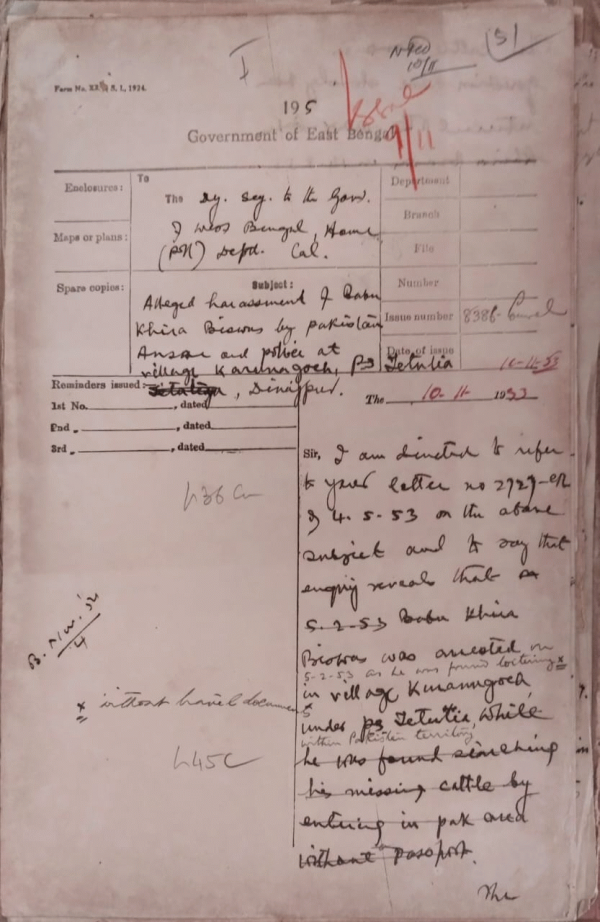 I
51
10/11
Form No. S. I, 1924.
195
1/11
Government of East Bengal
Enclosures:
Maps or plans:
Spare copies:
To
The Dy. Secy. to the Govt.
of West Bengal, Home
(Poll) Deptt. Cal.
Subject:
Alleged harassment of Babu
Khira Biswas by Pakistan
Ansar and police at
village Karunagoch, PS Tetulia
, Dinajpur.
Department
Branch
File
Number
Issue number 8386-
Date of issue 11-11-53
The 10-11-1953
Reminders issued:
1st No. , dated
2nd „ , dated
3rd „ , dated
Sir, I am directed to refer
to your letter no 2727-
of 4.5.53 on the above
subject and to say that
enquiry reveals that on
5-2-53 Babu Khira
Biswas was arrested on
5-2-53 as he was found loitering x
in village Karunagoch
under PS Tetulia, while
within Pakistan territory
he was found searching
his missing cattle by
entering in pak area
without passport.
The
436
x without travel documents
445C